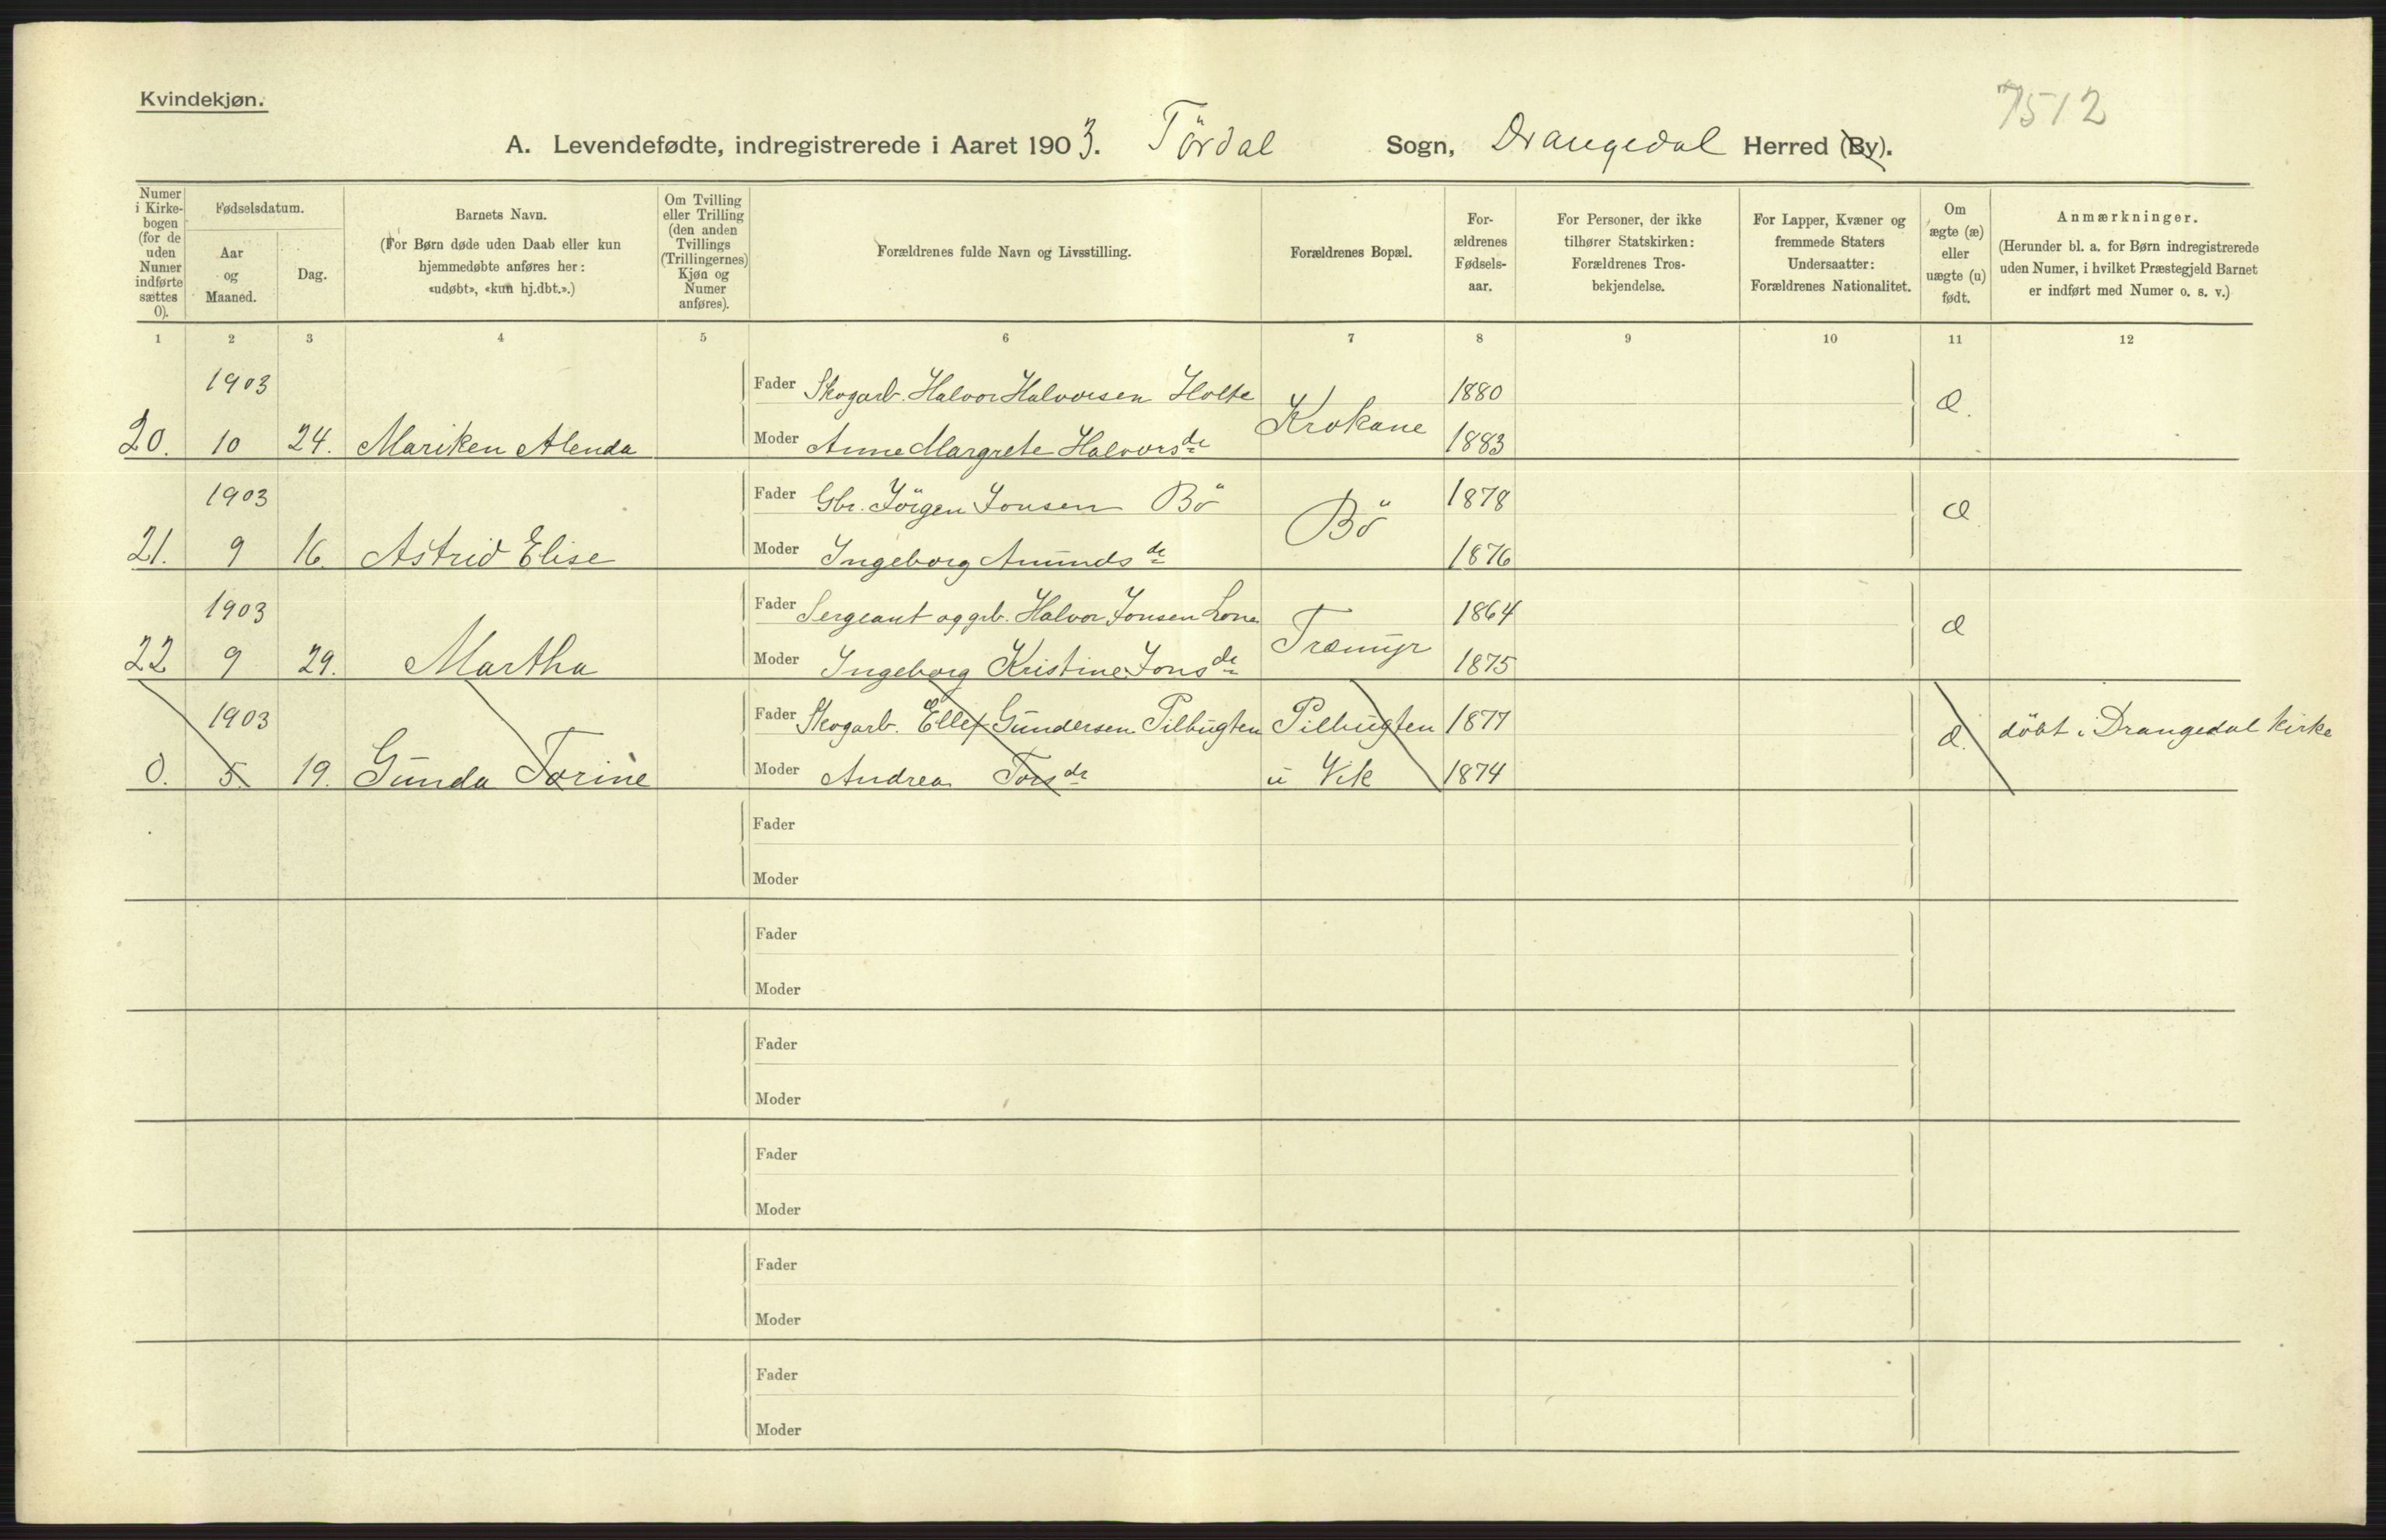 Kvindekjøn.
7512
A. Levendefødte, indregistrerede i Aaret 1903. Tördal Sogn, Drangedal Herred (By).
Numer i Kirkebogen (for de uden Numer indførte sættes 0).
Fødselsdatum.
Aar og Maaned.
Dag.
Barnets Navn.
(For Børn døde uden Daab eller kun
hjemmedøbte anføres her:
«udøbt», «kun hj.dbt.».)
Om Tvilling
eller Trilling
(den anden
Tvillings
(Trillingernes)
Kjøn og
Numer
anføres).
Forældrenes fulde Navn og Livsstilling.
Forældrenes Bopæl.
For-
ældrenes
Fødsels-
aar.
For Personer, der ikke
tilhører Statskirken:
Forældrenes Tros-
bekjendelse.
For Lapper, Kvæner og
fremmede Staters
Undersaatter:
Forældrenes Nationalitet.
Om
ægte (æ)
eller
uægte (u)
født.
Anmærkninger.
(Herunder bl. a. for Børn indregistrerede
uden Numer, i hvilket Præstegjeld Barnet
er indført med Numer o. s. v.)
1 2 3 4 5 6 7 8 9 10 11 12
1903 Fader Skogarb. Halvor Halvorsen Holte 1880
20. 10 24. Mariken Alenda Moder Anne Margrete Halvorsdr Krokane 1883 æ.
1903 Fader Gbr. Jörgen Jonsen Bö 1878
21. 9 16. Astrid Elise Moder Ingeborg Amundsdr Bö 1876 æ
1903 Fader Sergeant og grb. Halvor Jonsen Lone 1864
22 9 29. Martha Moder Ingeborg Kristine Jonsdr Træmyr 1875 æ
1903 Fader Skogarb. Ellef Gundersen Pilbugten Pilbugten 1877 æ. döbt i Drangedal Kirke
0. 5. 19. Gunda Torine Moder Andrea Torsdr u Vik 1874
Fader
Moder
Fader
Moder
Fader
Moder
Fader
Moder
Fader
Moder
Fader
Moder